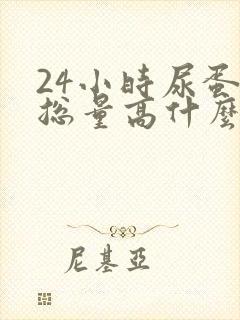 24小時尿蛋
総量高什麼
尼基亞